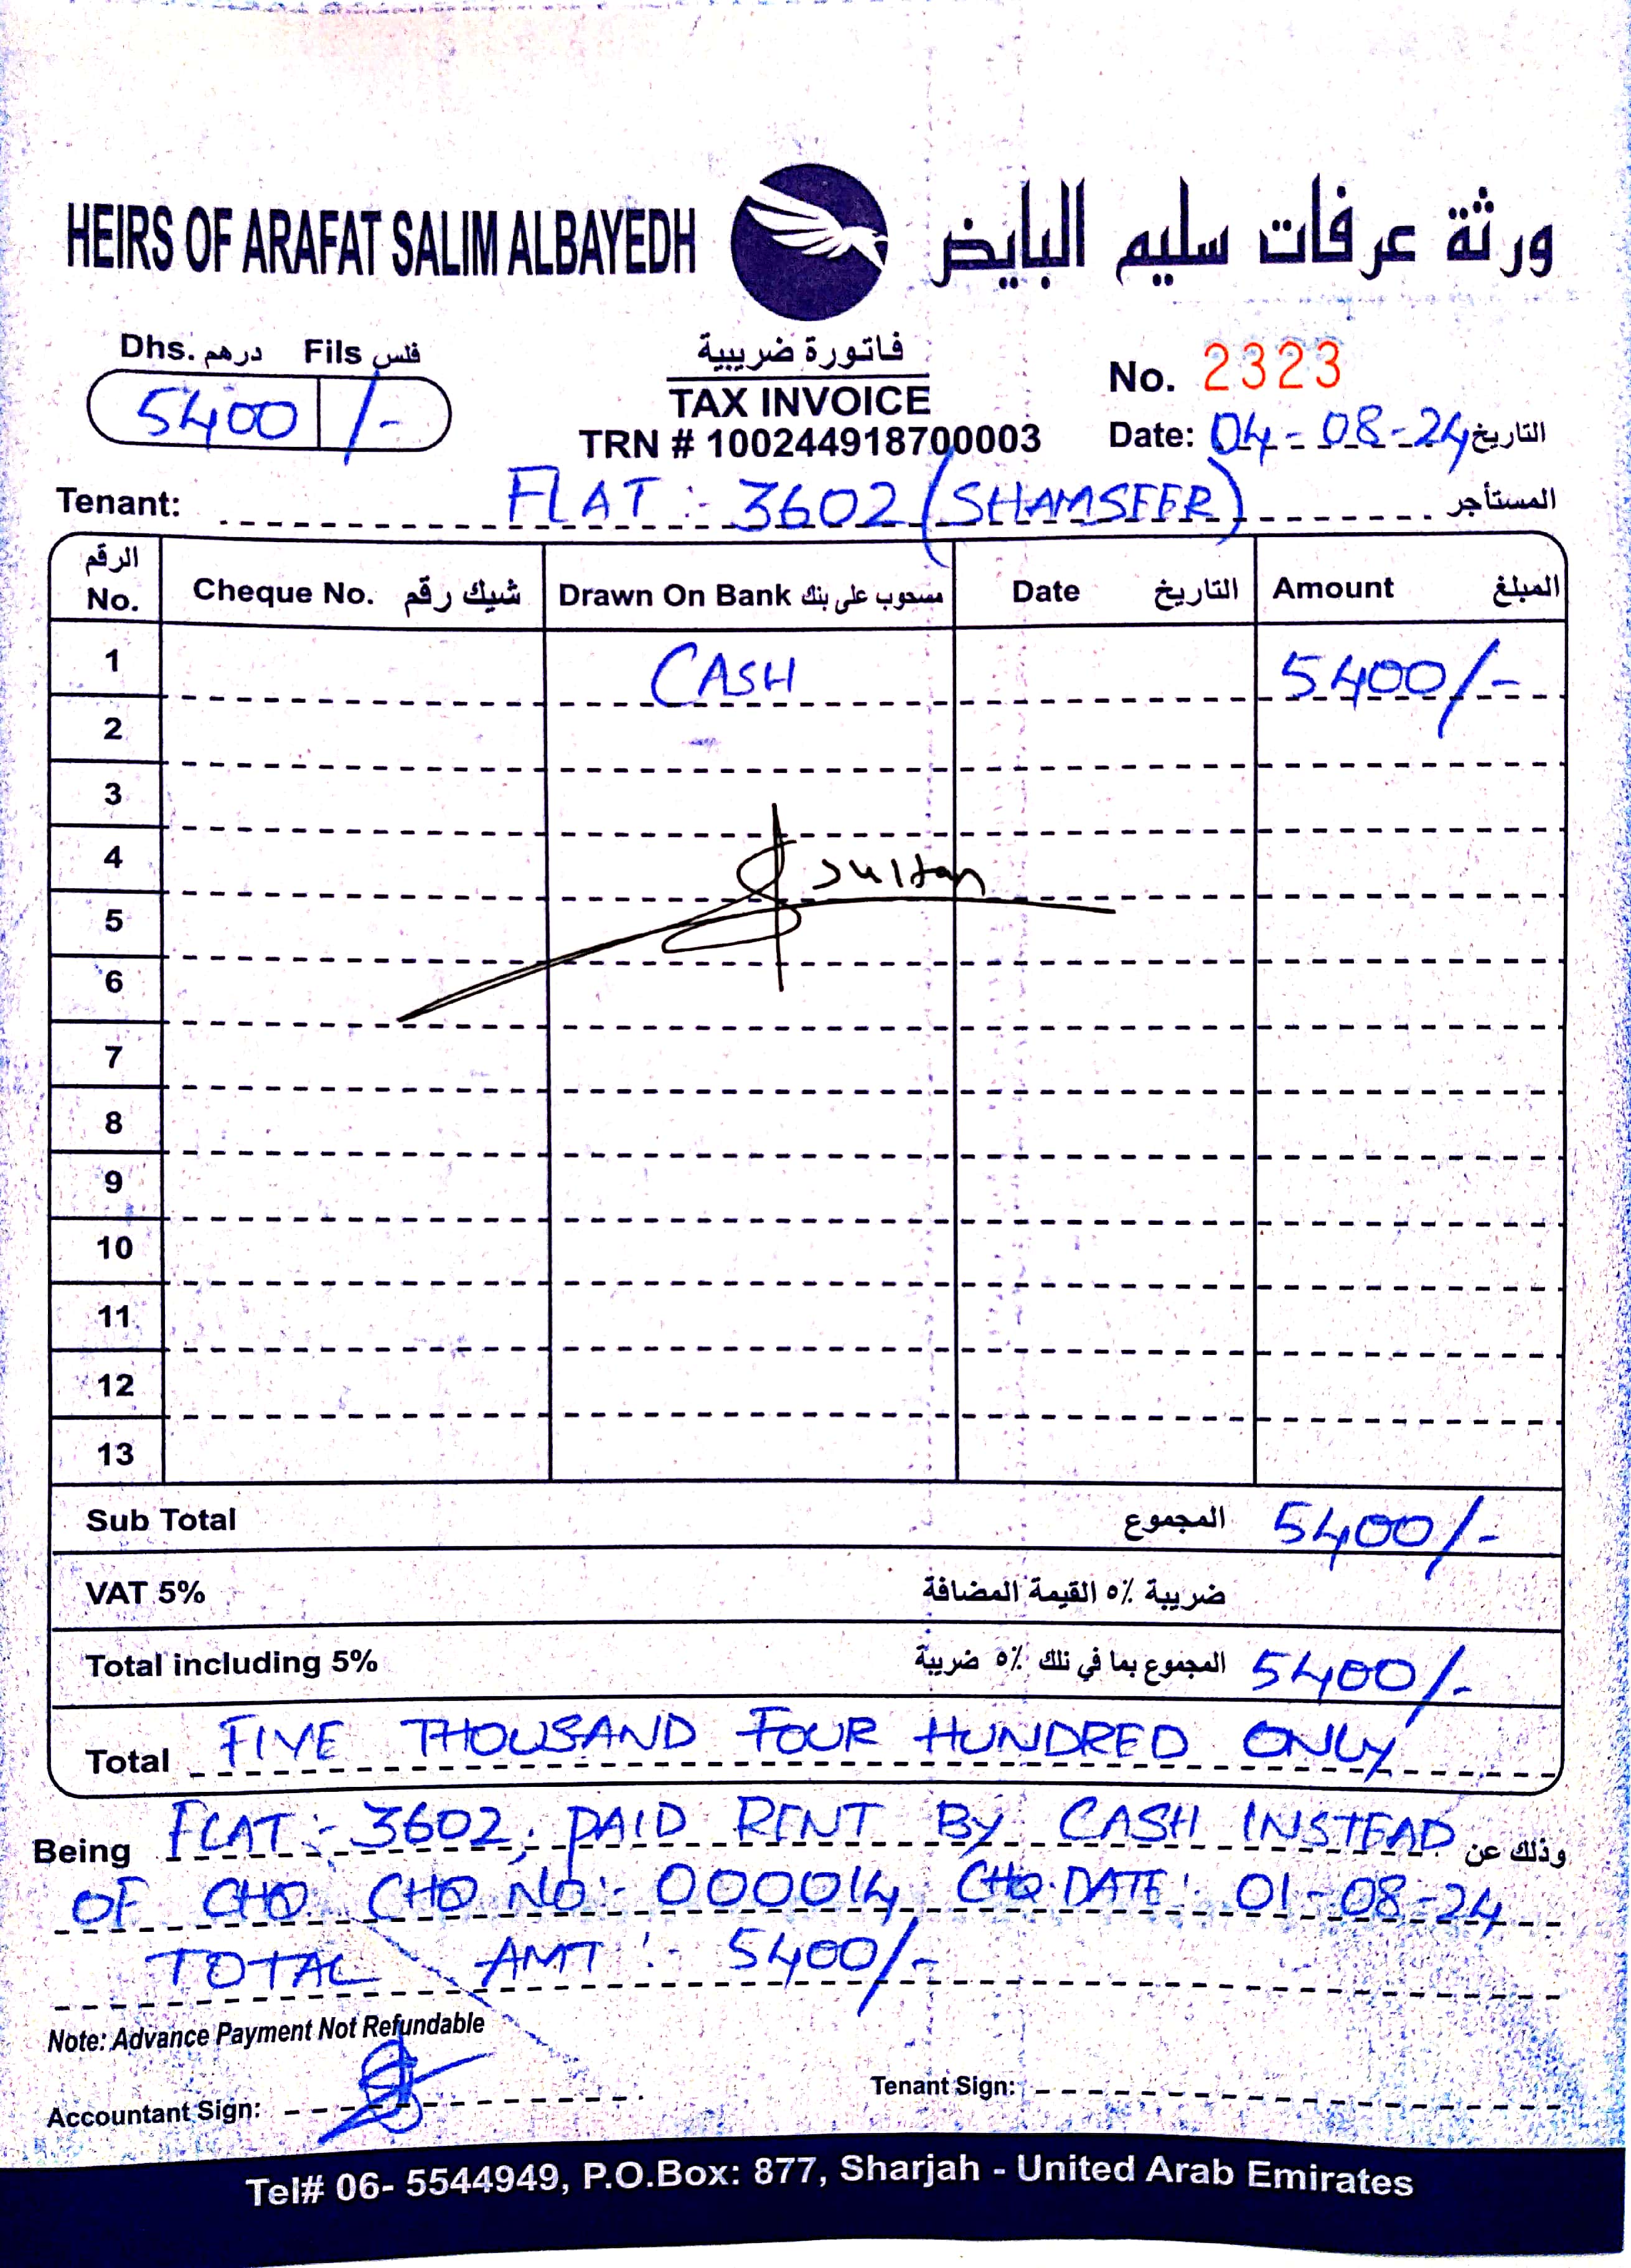 HEIRS OF ARAFAT SALIM ALBAYEDH ورثة عرفات سليم البايض
Dhs. درهم Fils فلس
5400 /-
فاتورة ضريبية
TAX INVOICE
TRN # 100244918700003
No. 2323
Date: 04-08-24 التاريخ
Tenant: FLAT :- 3602 (SHAMSEER) المستأجر
الرقم No. Cheque No. شيك رقم Drawn On Bank مسحوب على بنك Date التاريخ Amount المبلغ
1 CASH 5400/-
2
3
4 Sultan
5
6
7
8
9
10
11
12
13
Sub Total المجموع 5400/-
VAT 5% ضريبة ٥٪ القيمة المضافة
Total including 5% المجموع بما في ذلك ٥٪ ضريبة 5400/-
Total FIVE THOUSAND FOUR HUNDRED ONLY
Being FLAT :- 3602, PAID RENT BY CASH INSTEAD وذلك عن
OF CHQ. CHQ NO :- 000014 CHQ.DATE :- 01-08-24
TOTAL AMT :- 5400/-
Note: Advance Payment Not Refundable
Accountant Sign: Tenant Sign:
Tel# 06- 5544949, P.O.Box: 877, Sharjah - United Arab Emirates